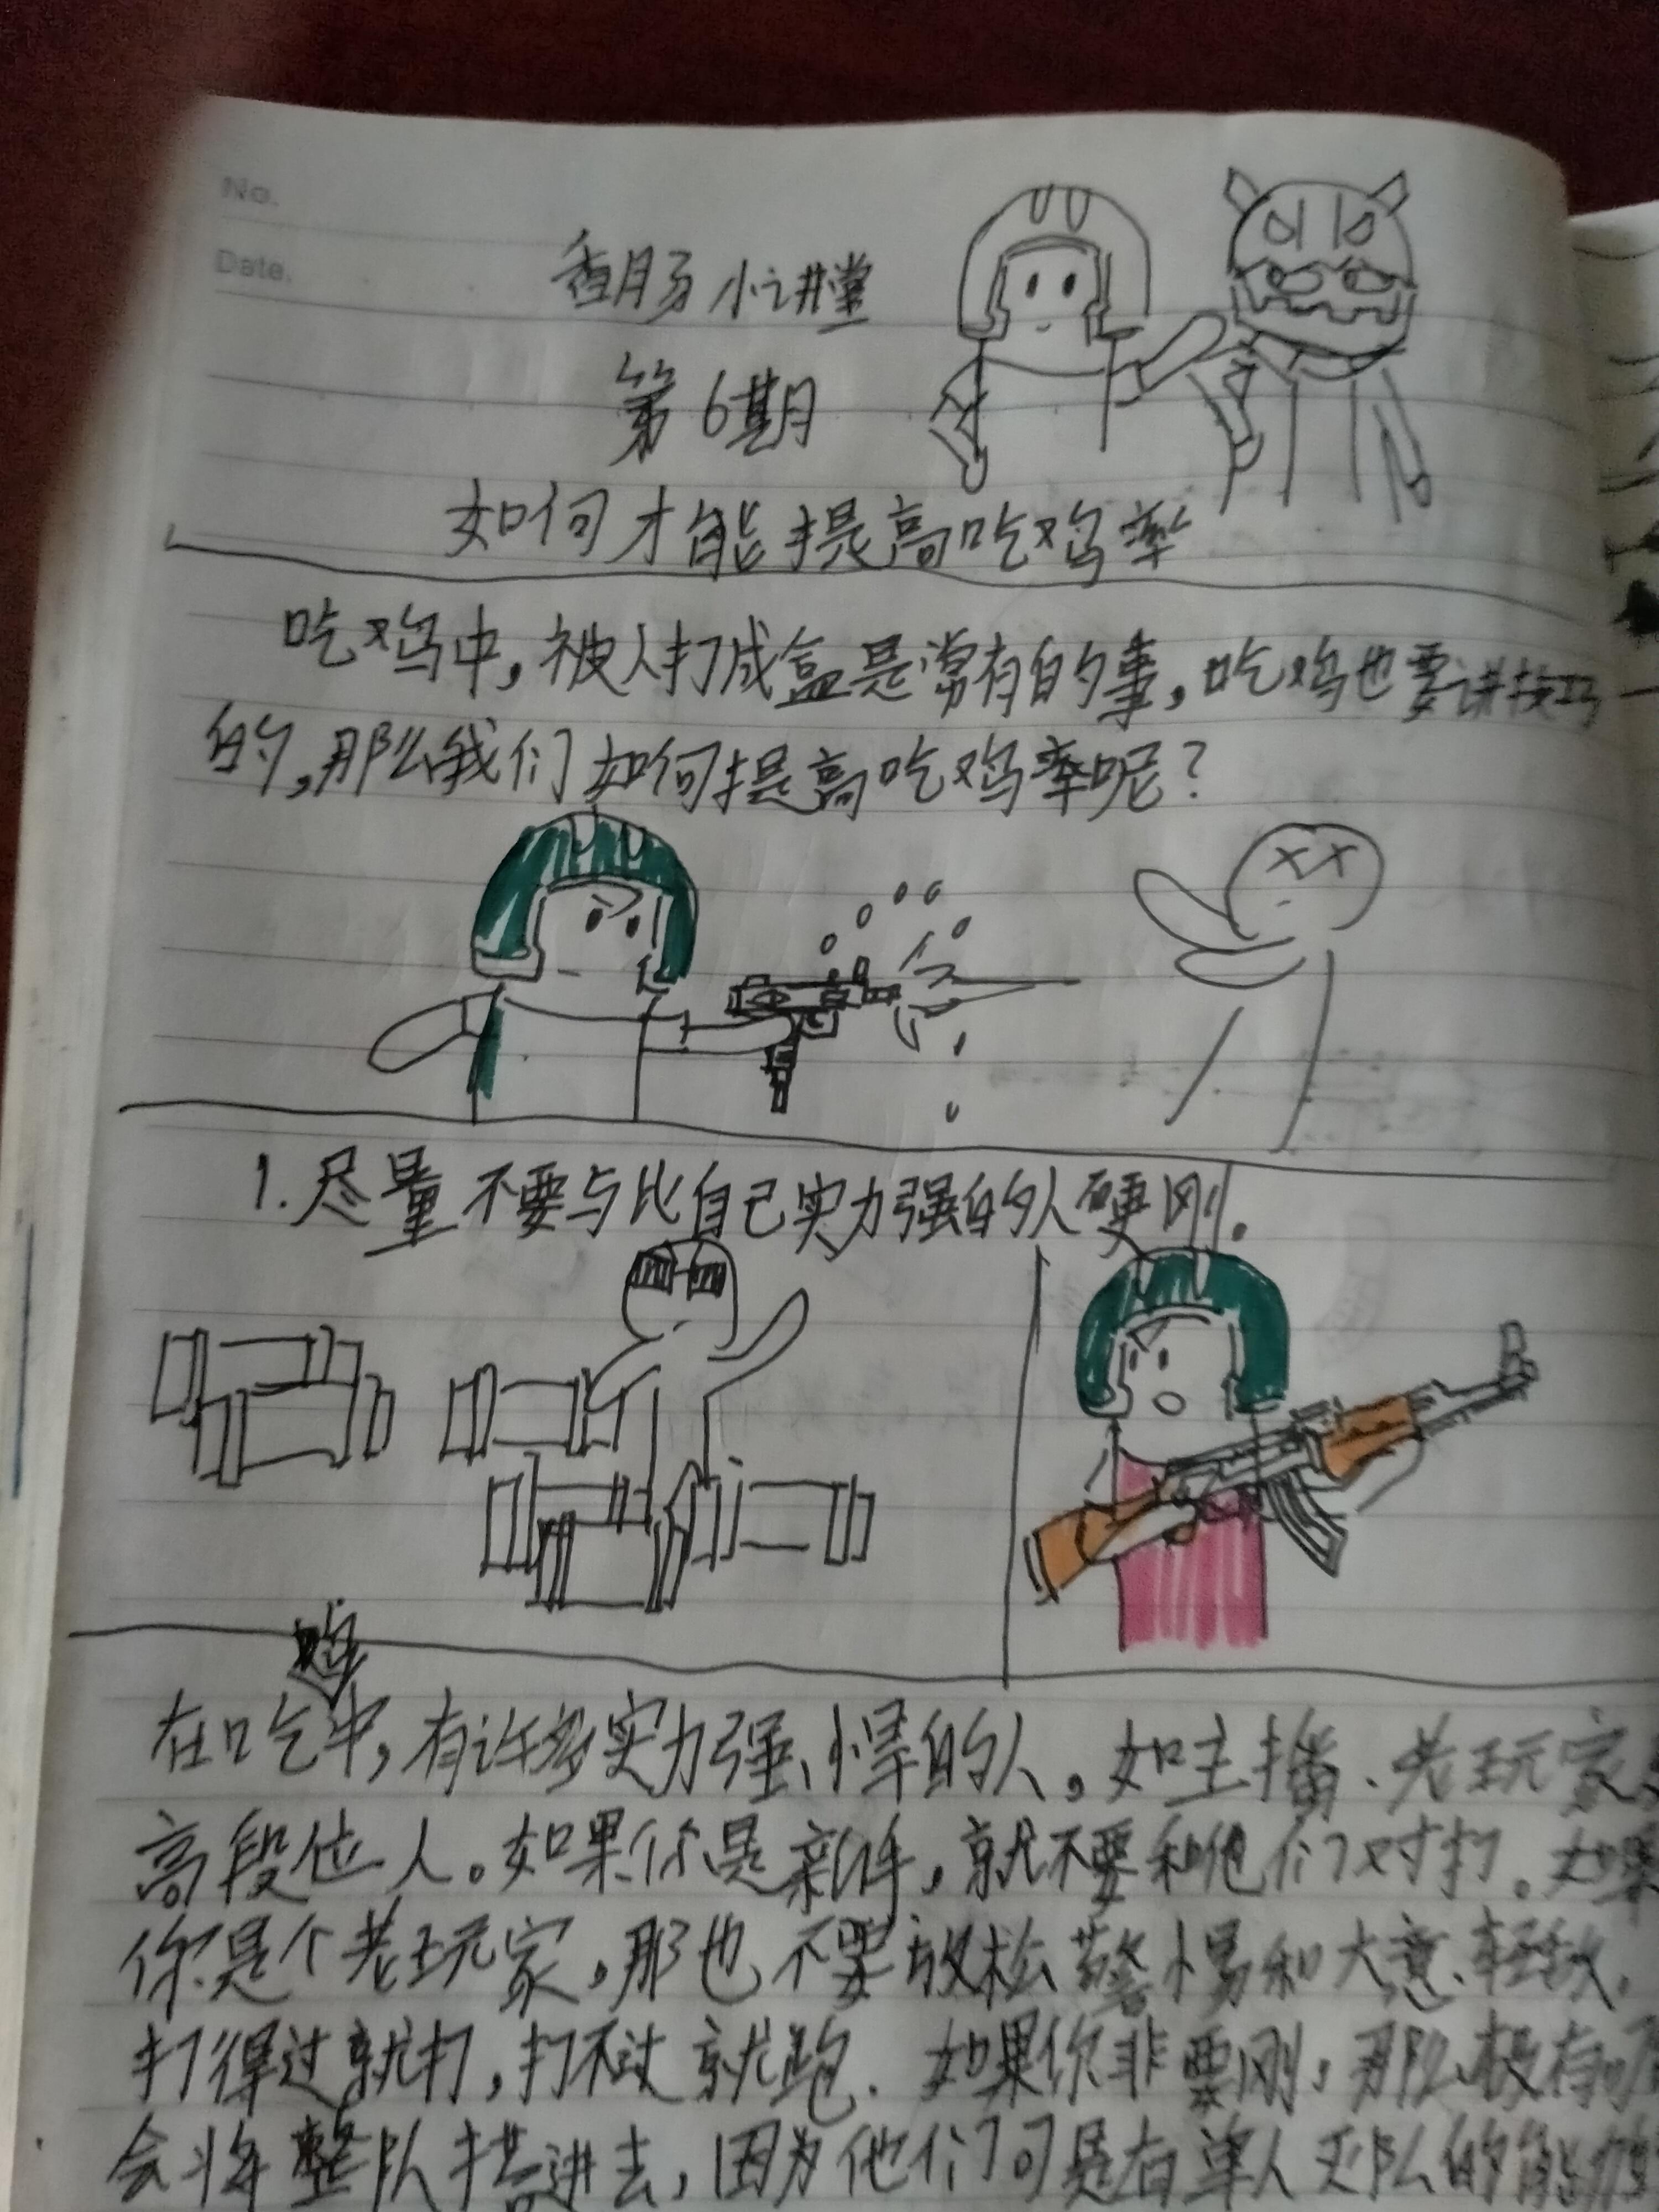 No.
Date.
香肠小讲堂
第6期
如何才能提高吃鸡率
吃鸡中,被人打成盒是常有的事,吃鸡也要讲技巧
的,那么我们如何提高吃鸡率呢?
1.尽量不要与比自己实力强的人硬刚。
鸡
在吃中,有许多实力强悍的人。如主播、老玩家
高段位人。如果你是新手,就不要和他们对打。如果
你是个老玩家,那也不要放松警惕和大意、轻敌.
打得过就打,打不过就跑.如果你非要刚,那么极有可
会将整队搭进去,因为他们可是有单人灭队的能